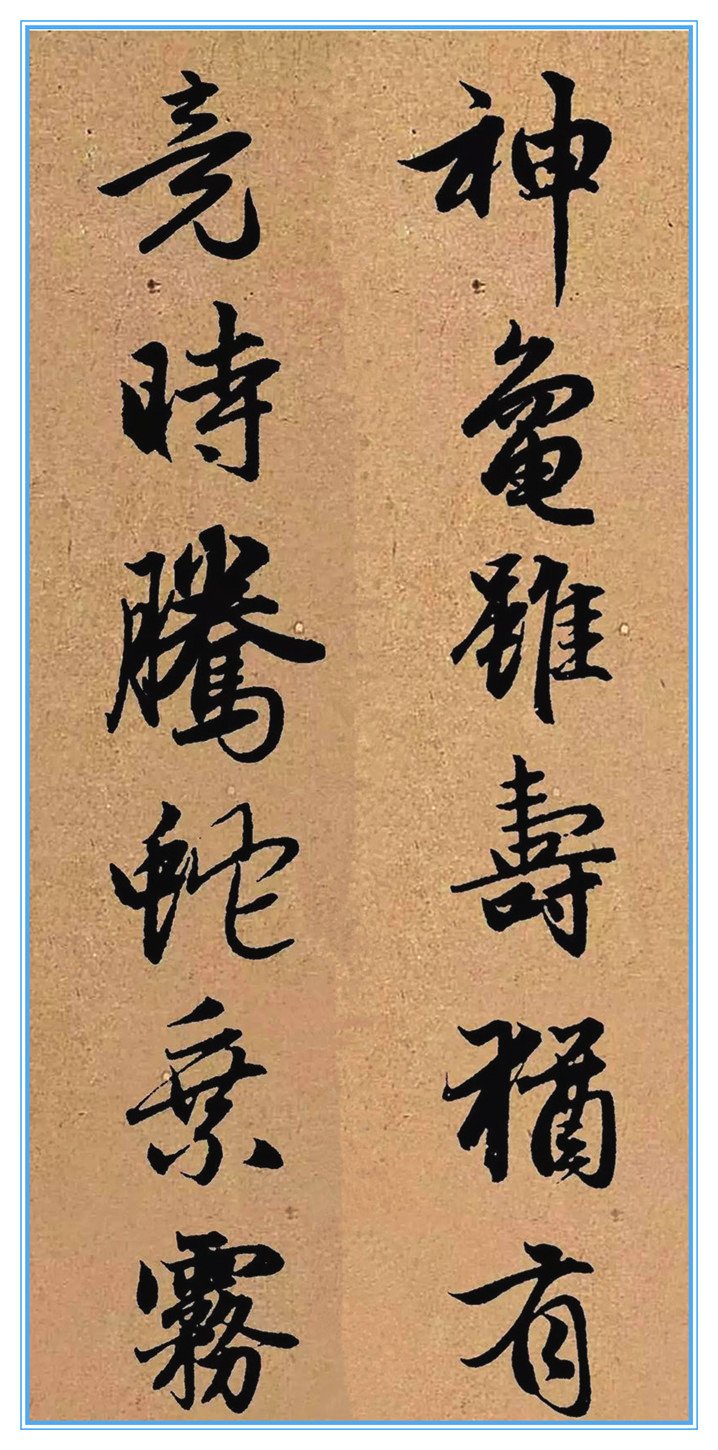 神龜雖壽猶有
竟時騰蛇乗霧